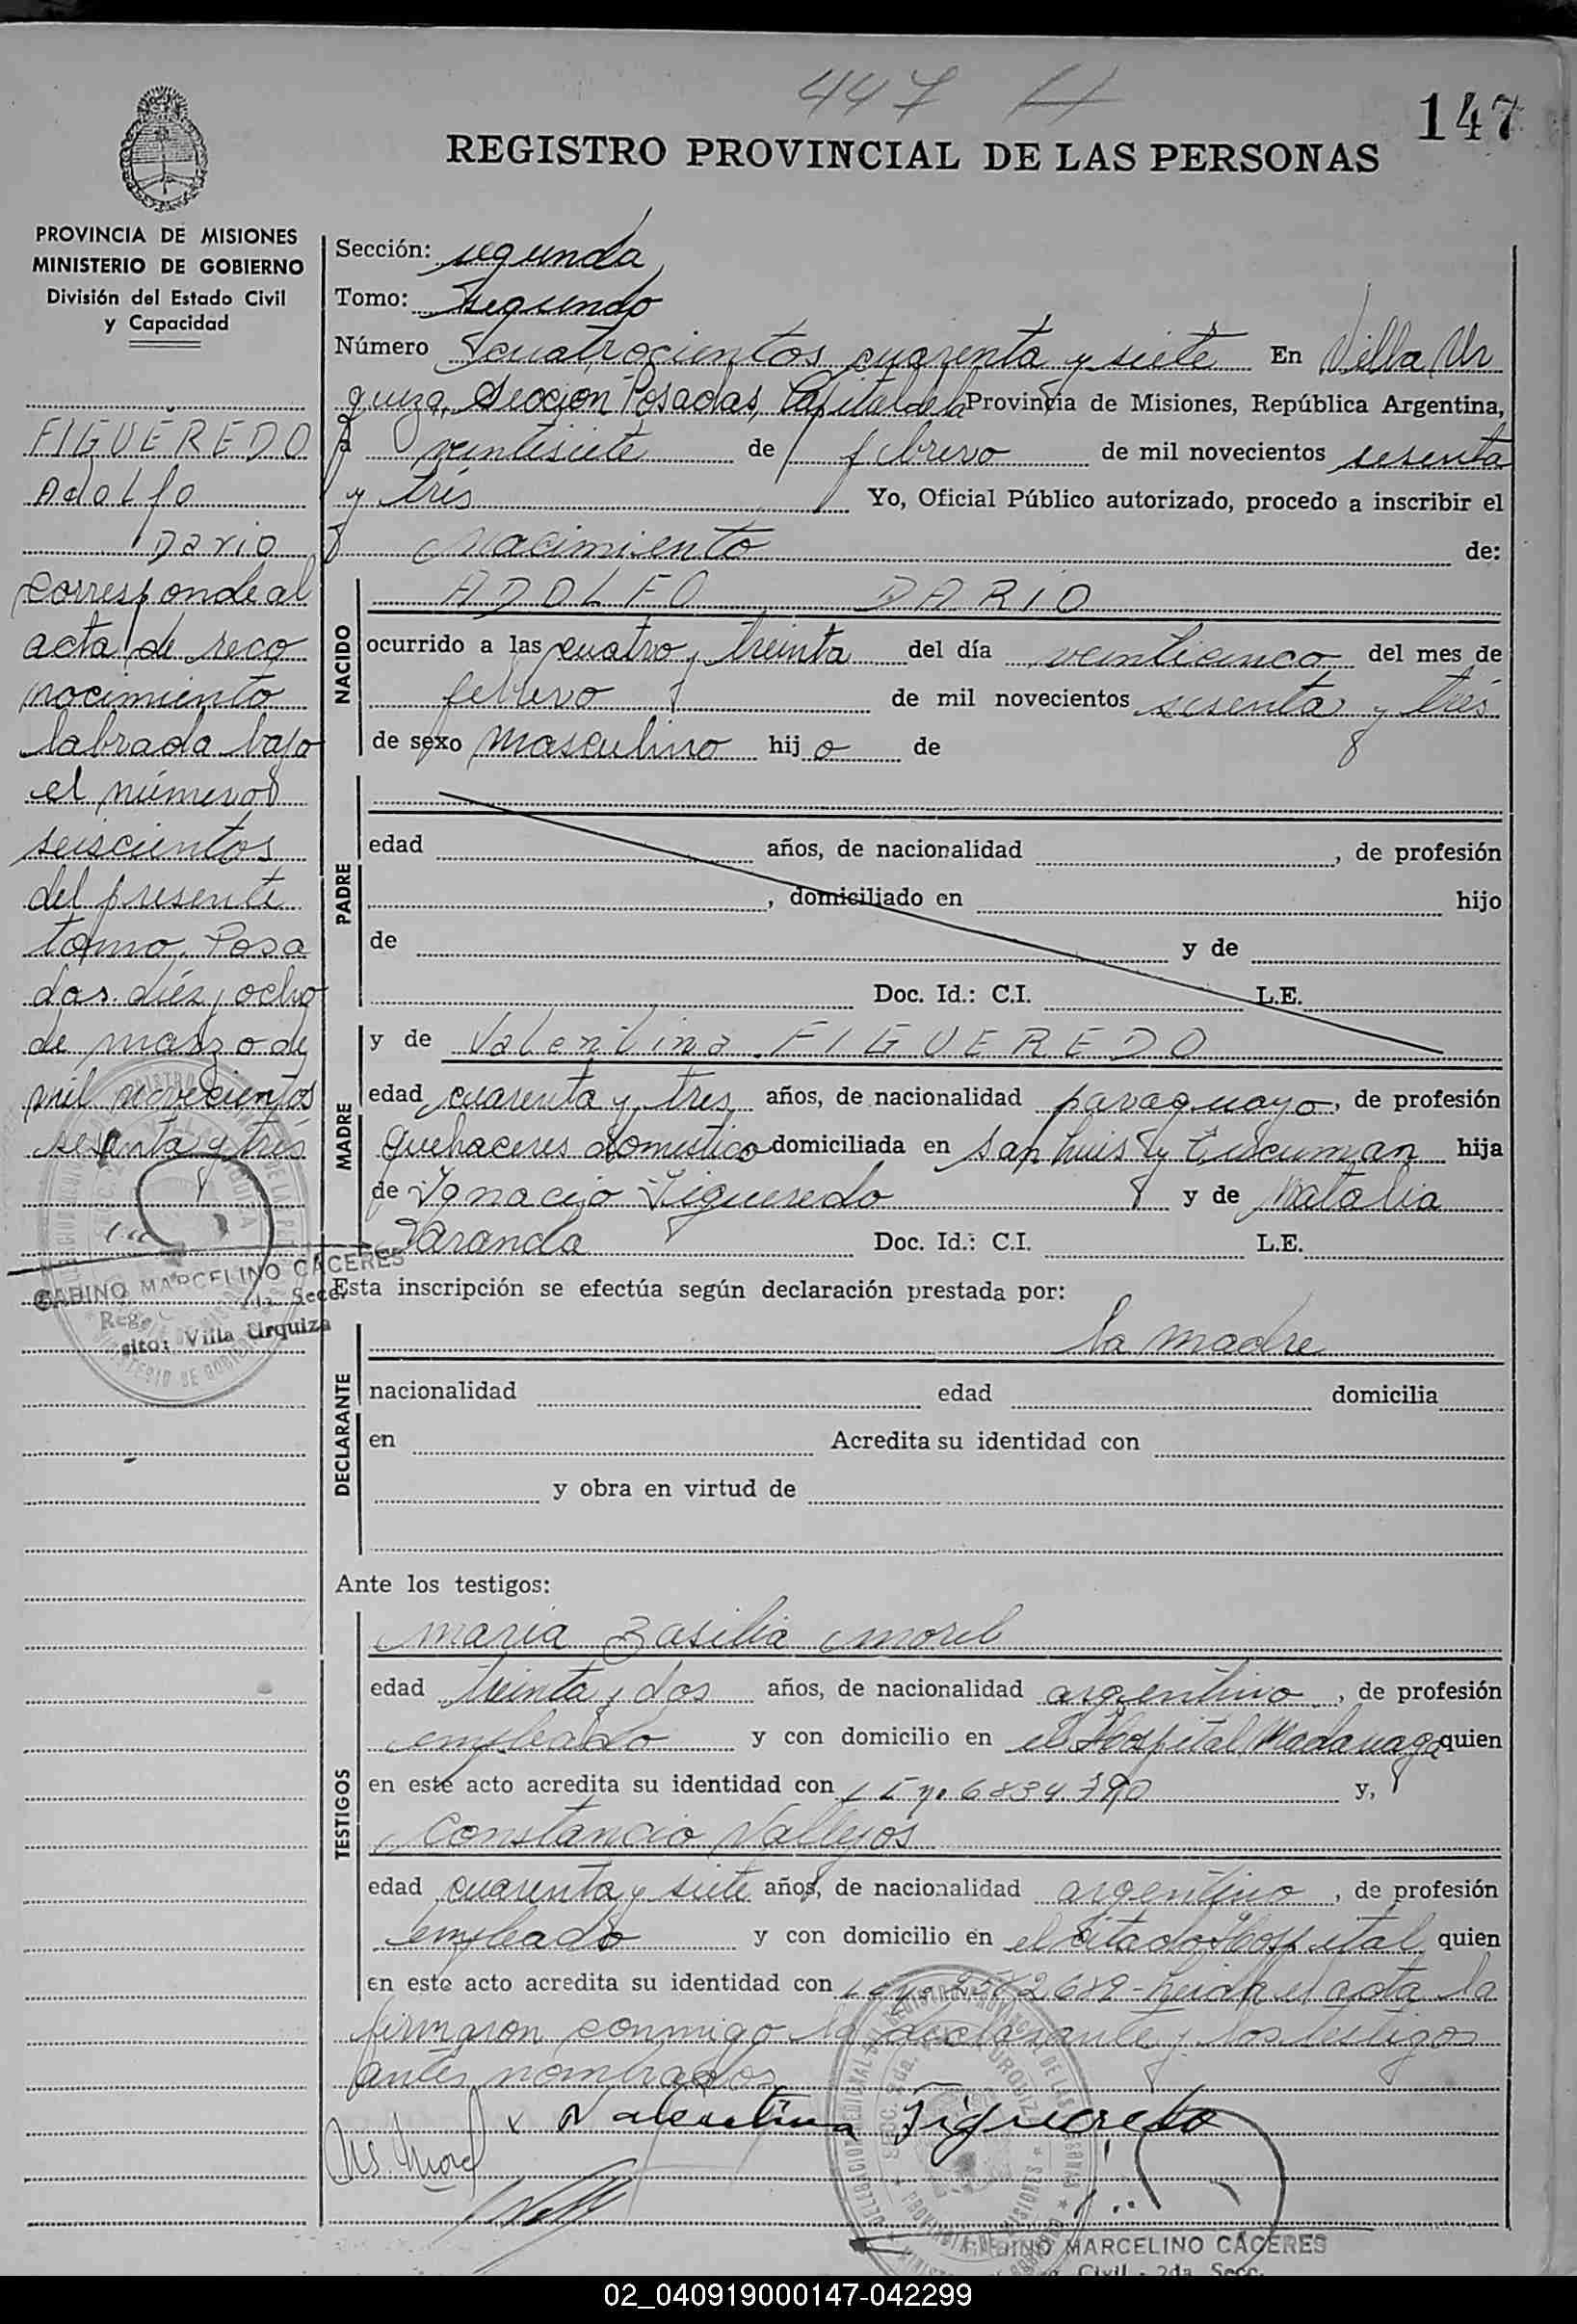 447 H
147
REGISTRO PROVINCIAL DE LAS PERSONAS
PROVINCIA DE MISIONES
MINISTERIO DE GOBIERNO
División del Estado Civil
y Capacidad
FIGUEREDO
Adolfo
Dario
corresponde al
acta de reco
nocimiento
labrada bajo
el número
seiscientos
del presente
tomo. Posa
das diéz y ocho
de marzo de
mil novecientos
sesenta y trés
GABINO MARCELINO CACERES
2da. Secc.
Villa Urquiza
Sección: segunda
Tomo: segundo
Número cuatrocientos cuarenta y siete En Villa Ur
quiza, Sección Posadas, Capital de la Provincia de Misiones, República Argentina,
a veintisiete de febrero de mil novecientos sesenta
y trés Yo, Oficial Público autorizado, procedo a inscribir el
Nacimiento de:
NACIDO
ADOLFO DARIO
ocurrido a las cuatro y treinta del día veinticinco del mes de
febrero de mil novecientos sesenta y trés
de sexo masculino hijo de
PADRE
edad años, de nacionalidad , de profesión
, domiciliado en hijo
de y de
Doc. Id.: C.I. L.E.
MADRE
y de Valentina FIGUEREDO
edad cuarenta y tres años, de nacionalidad paraguayo, de profesión
quehaceres domestico domiciliada en San Luis y Tucuman hija
de Ignacio Figueredo y de Natalia
Aranda Doc. Id.: C.I. L.E.
Esta inscripción se efectúa según declaración prestada por:
DECLARANTE
la madre
nacionalidad edad domicilia
en Acredita su identidad con
y obra en virtud de
Ante los testigos:
TESTIGOS
Maria Basilia Morel
edad treinta y dos años, de nacionalidad argentino, de profesión
empleado y con domicilio en el Hospital Madariaga quien
en este acto acredita su identidad con 6834.390 y,
Constancio Vallejos
edad cuarenta y siete años, de nacionalidad argentino, de profesión
empleado y con domicilio en el citado Hospital quien
en este acto acredita su identidad con 2582689- Leida el acta la
firmaron conmigo la declarante y los testigos
antes nombrados
Valentina Figueredo
Ms. Morel
GABINO MARCELINO CACERES
Civil - 2da. Secc.
02_040919000147-042299